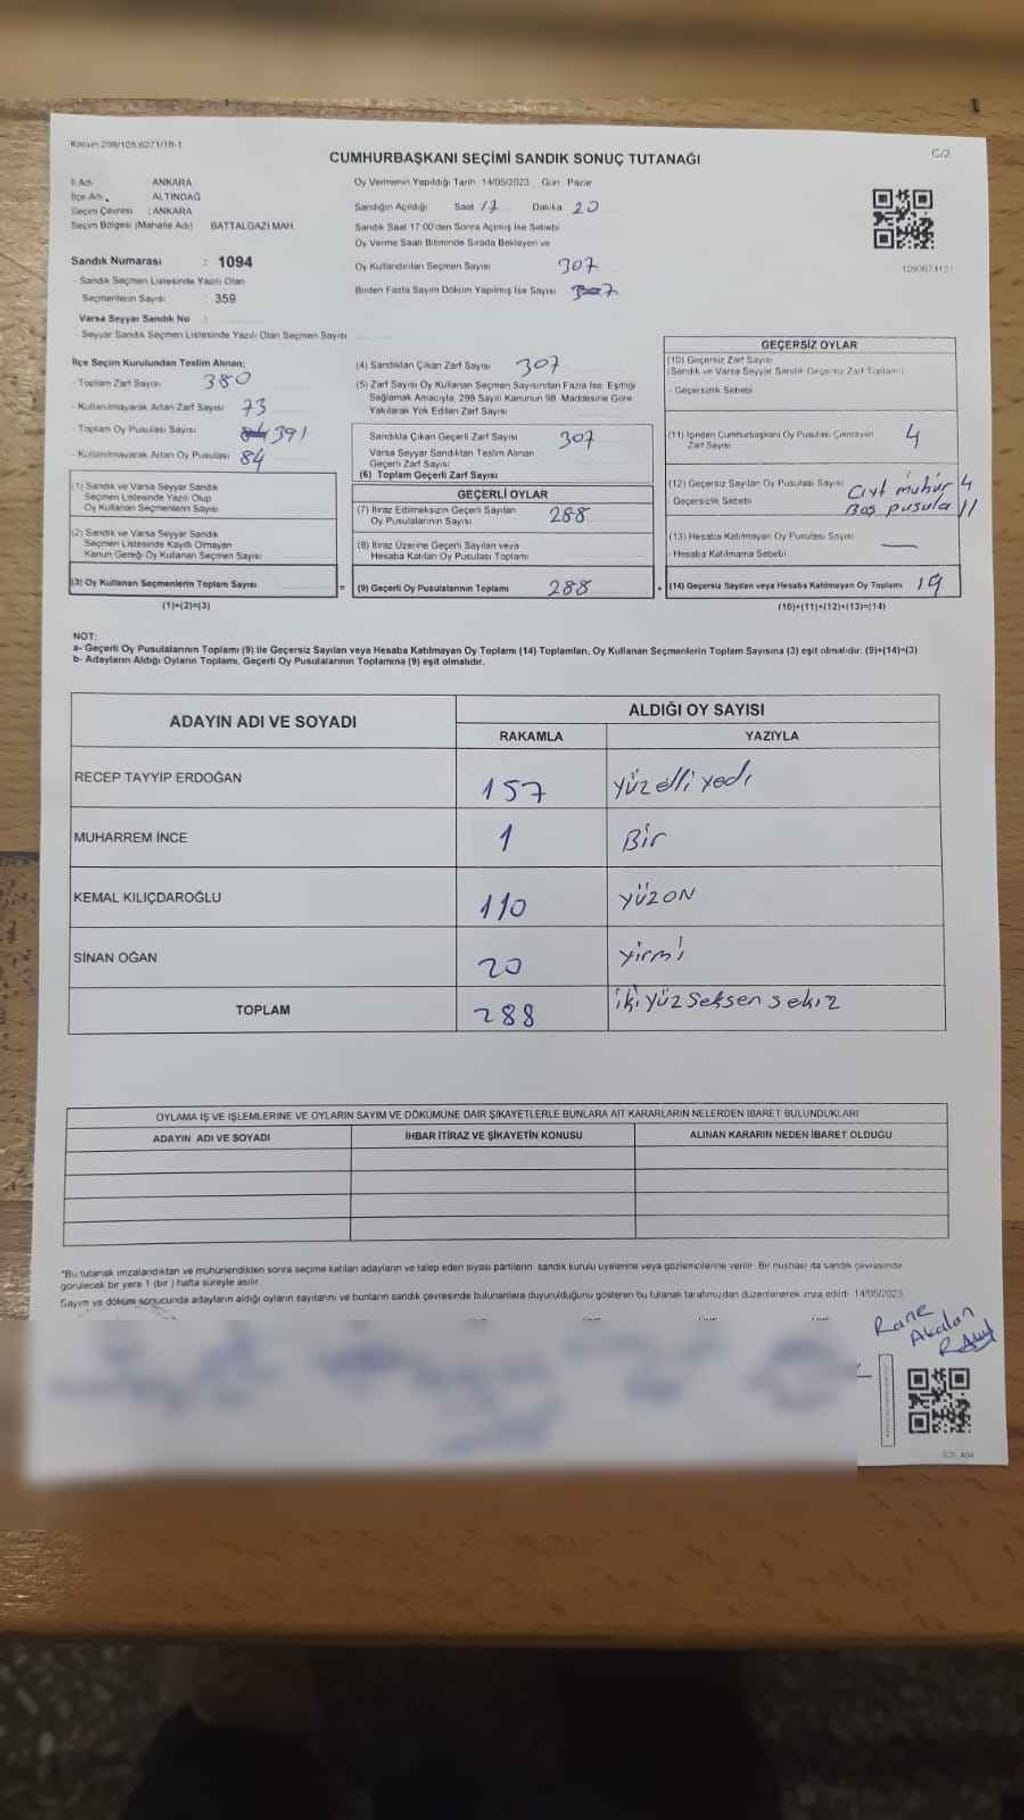 Kanun 298/105,6271/18-1
C/2
CUMHURBAŞKANI SEÇİMİ SANDIK SONUÇ TUTANAĞI
İl Adı ANKARA
İlçe Adı ALTINDAĞ
Seçim Çevresi : ANKARA
Seçim Bölgesi (Mahalle Adı) BATTALGAZİ MAH.
Sandık Numarası : 1094
- Sandık Seçmen Listesinde Yazılı Olan
Seçmenlerin Sayısı : 359
Varsa Seyyar Sandık No :
- Seyyar Sandık Seçmen Listesinde Yazılı Olan Seçmen Sayısı
Oy Vermenin Yapıldığı Tarih 14/05/2023 Gün Pazar
Sandığın Açıldığı Saat 17 Dakika 20
Sandık Saat 17:00'den Sonra Açmış İse Sebebi
Oy Verme Saati Bitiminde Sırada Bekleyen ve
Oy Kullandırılan Seçmen Sayısı 307
Birden Fazla Sayım Döküm Yapılmış İse Sayısı
İlçe Seçim Kurulundan Teslim Alınan;
- Toplam Zarf Sayısı 380
- Kullanılmayarak Artan Zarf Sayısı 73
- Toplam Oy Pusulası Sayısı 391
- Kullanılmayarak Artan Oy Pusulası 84
(1) Sandık ve Varsa Seyyar Sandık
Seçmen Listesinde Yazılı Olup
Oy Kullanan Seçmenlerin Sayısı
(2) Sandık ve Varsa Seyyar Sandık
Seçmen Listesinde Kayıtlı Olmayan
Kanun Gereği Oy Kullanan Seçmen Sayısı
(3) Oy Kullanan Seçmenlerin Toplam Sayısı =
(1)+(2)=(3)
(4) Sandıktan Çıkan Zarf Sayısı 307
(5) Zarf Sayısı Oy Kullanan Seçmen Sayısından Fazla İse; Eşitliği
Sağlamak Amacıyla, 298 Sayılı Kanunun 98. Maddesine Göre
Yakılarak Yok Edilen Zarf Sayısı
Sandıkta Çıkan Geçerli Zarf Sayısı 307
Varsa Seyyar Sandıktan Teslim Alınan
Geçerli Zarf Sayısı
(6) Toplam Geçerli Zarf Sayısı
GEÇERLİ OYLAR
(7) İtiraz Edilmeksizin Geçerli Sayılan
Oy Pusulalarının Sayısı 288
(8) İtiraz Üzerine Geçerli Sayılan veya
Hesaba Katılan Oy Pusulası Toplamı
(9) Geçerli Oy Pusulalarının Toplamı 288 +
GEÇERSİZ OYLAR
(10) Geçersiz Zarf Sayısı
(Sandık ve Varsa Seyyar Sandık Geçersiz Zarf Toplamı)
- Geçersizlik Sebebi
(11) İçinden Cumhurbaşkanı Oy Pusulası Çıkmayan
Zarf Sayısı 4
(12) Geçersiz Sayılan Oy Pusulası Sayısı Çift mühür 4
- Geçersizlik Sebebi Boş pusula 11
(13) Hesaba Katılmayan Oy Pusulası Sayısı —
- Hesaba Katılmama Sebebi
(14) Geçersiz Sayılan veya Hesaba Katılmayan Oy Toplamı 19
(10)+(11)+(12)+(13)=(14)
NOT:
a- Geçerli Oy Pusulalarının Toplamı (9) ile Geçersiz Sayılan veya Hesaba Katılmayan Oy Toplamı (14) Toplamları, Oy Kullanan Seçmenlerin Toplam Sayısına (3) eşit olmalıdır. (9)+(14)=(3)
b- Adayların Aldığı Oyların Toplamı, Geçerli Oy Pusulalarının Toplamına (9) eşit olmalıdır.
ADAYIN ADI VE SOYADI ALDIĞI OY SAYISI
RAKAMLA YAZIYLA
RECEP TAYYİP ERDOĞAN 157 yüzelli yedi
MUHARREM İNCE 1 Bir
KEMAL KILIÇDAROĞLU 110 yüzon
SİNAN OĞAN 20 yirmi
TOPLAM 288 iki yüz seksen sekiz
OYLAMA İŞ VE İŞLEMLERİNE VE OYLARIN SAYIM VE DÖKÜMÜNE DAİR ŞİKAYETLERLE BUNLARA AİT KARARLARIN NELERDEN İBARET BULUNDUKLARI
ADAYIN ADI VE SOYADI İHBAR İTİRAZ VE ŞİKAYETİN KONUSU ALINAN KARARIN NEDEN İBARET OLDUĞU
*Bu tutanak imzalandıktan ve mühürlendikten sonra seçime katılan adayların ve talep eden siyasi partilerin sandık kurulu üyelerine veya gözlemcilerine verilir. Bir nüshası da sandık çevresinde
görülecek bir yere 1 (bir) hafta süreyle asılır.
Sayım ve döküm sonucunda adayların aldığı oyların sayılarını ve bunların sandık çevresinde bulunanlara duyurulduğunu gösteren bu tutanak tarafımızdan düzenlenerek imza edildi. 14/05/2023
Akalan